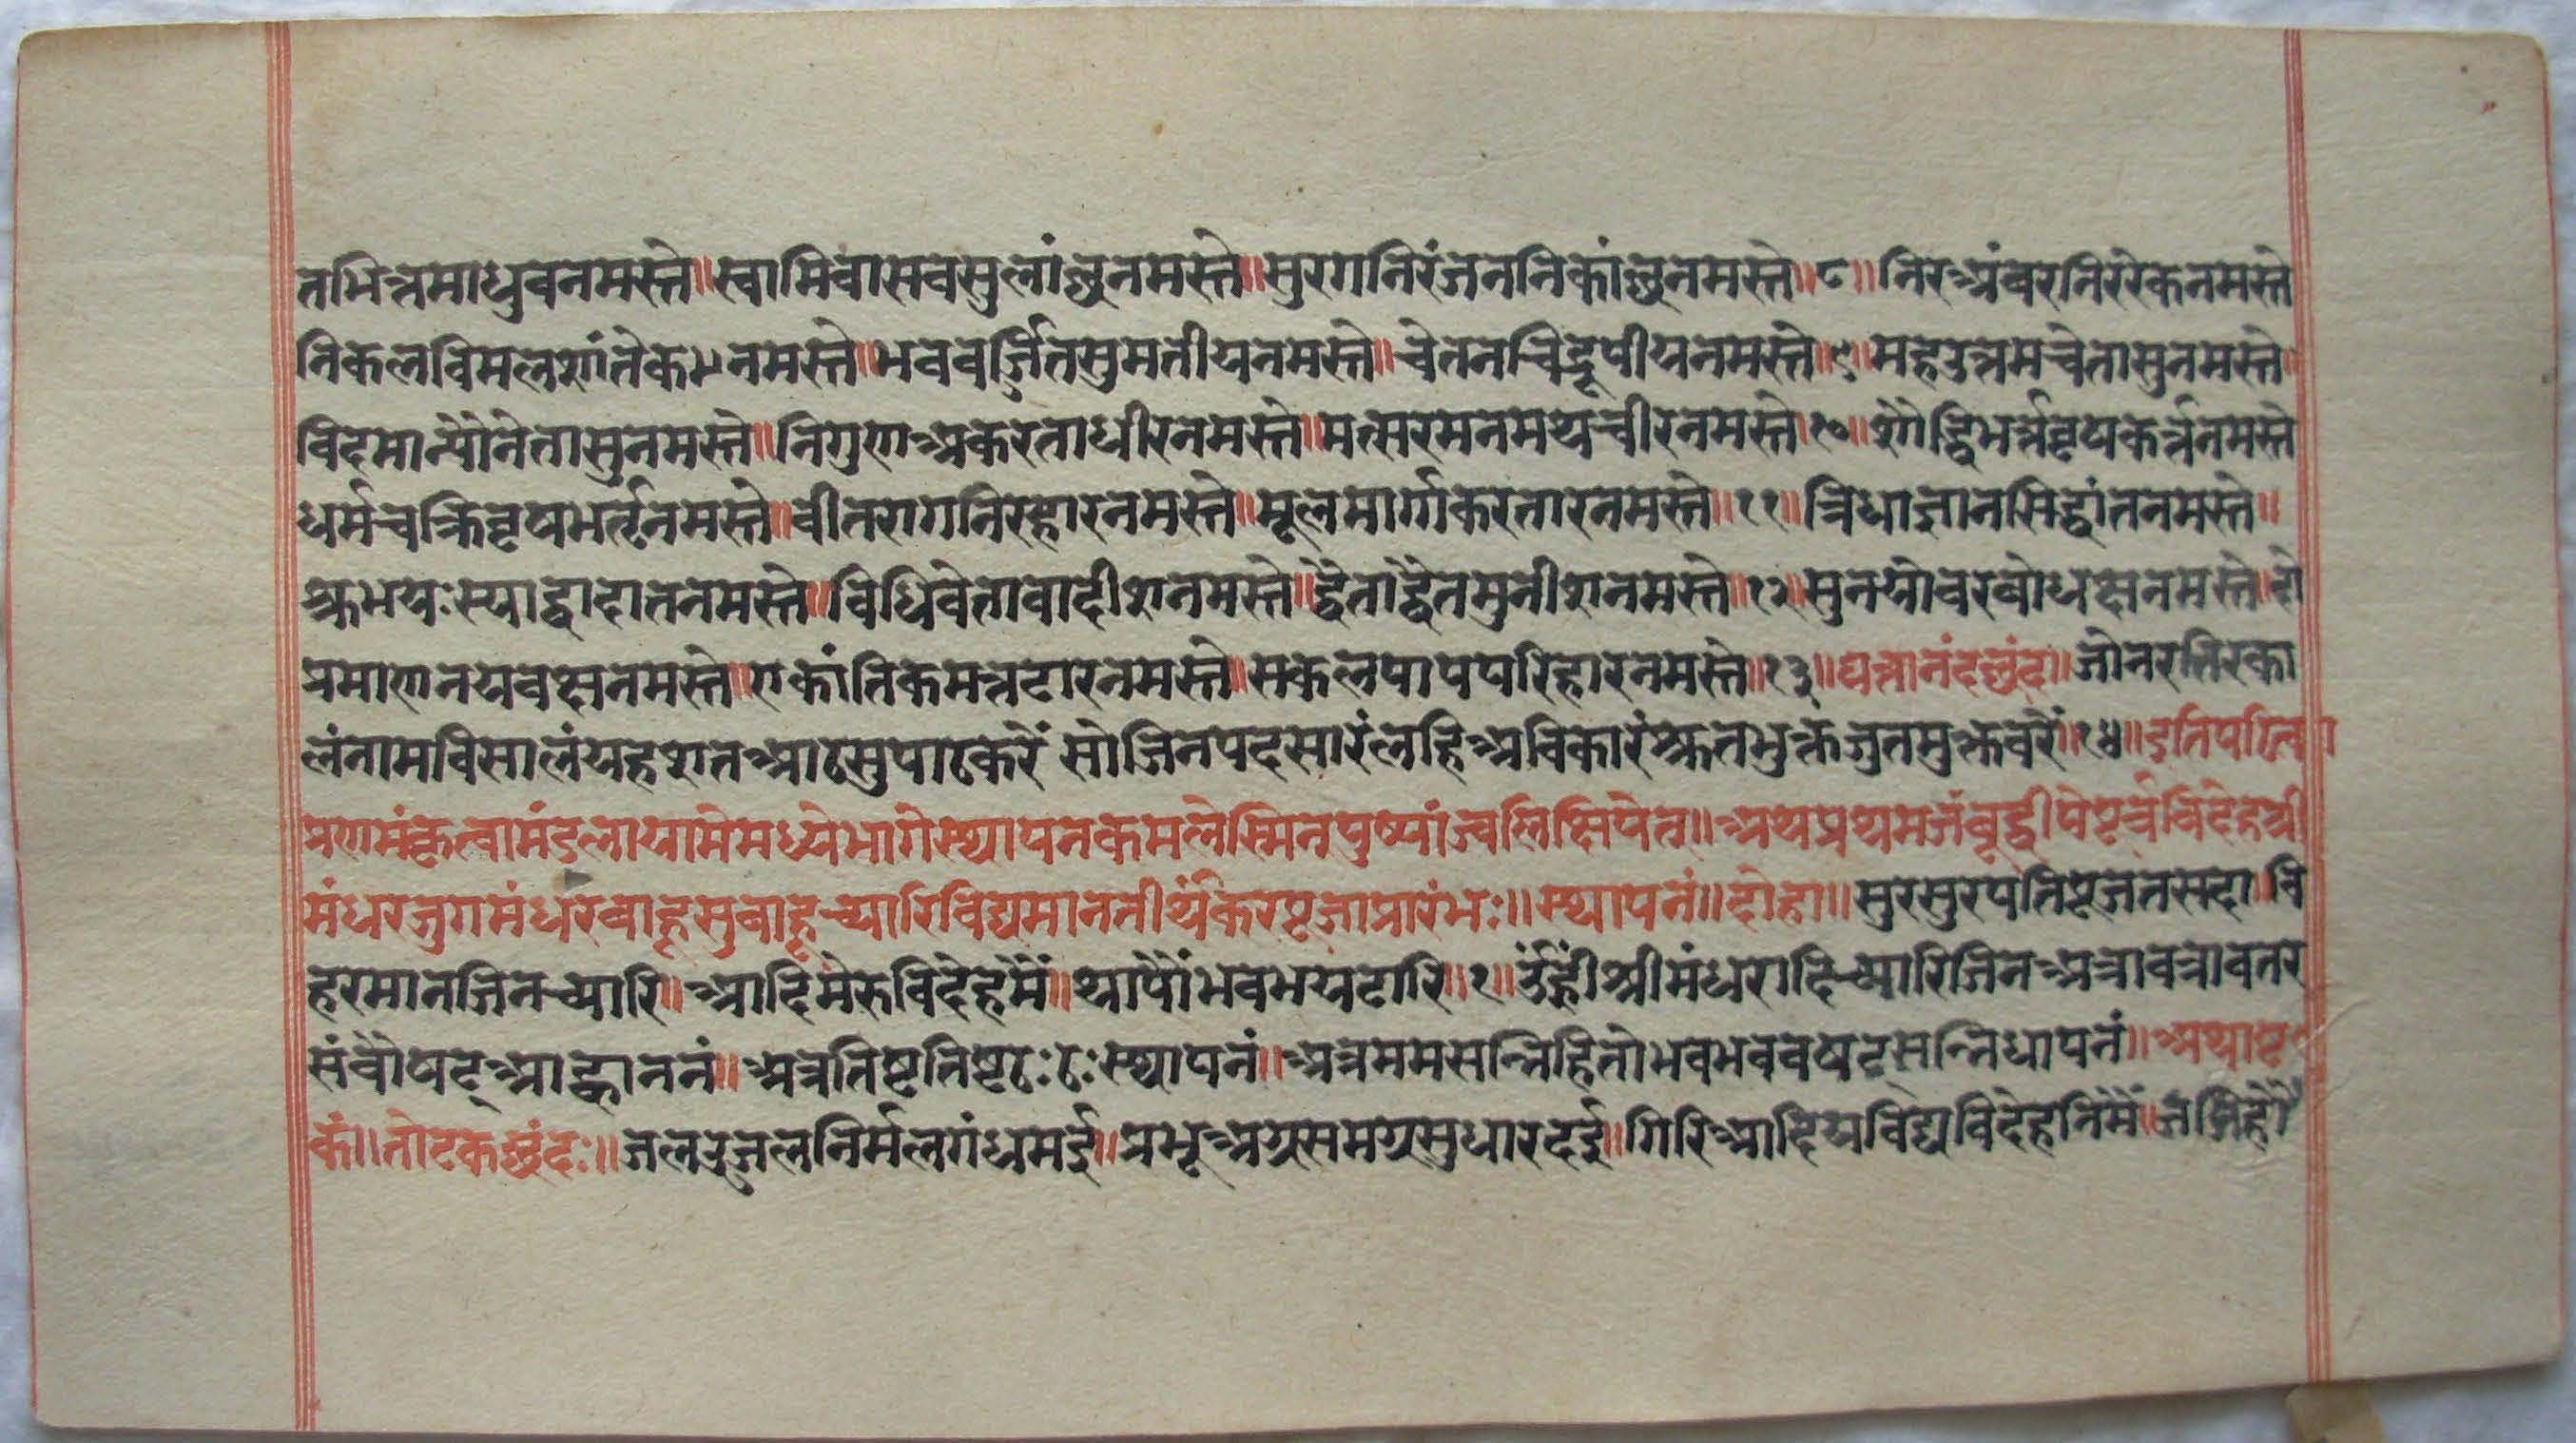 तमिन्नमाधुवनमस्ते॥स्वामिवासवसुलांछनमस्ते॥सुरगनिरंजननिकांछनमस्ते॥८॥निरअंवरनिररेकनमस्ते
निकलविमलशांतेकधनमस्ते॥भववर्जितसुमतीयनमस्ते॥चेतनचिद्रूपीयनमस्ते॥९॥महउत्तमचेतासुनमस्ते॥
विदमान्यौनेतासुनमस्ते॥निगुणअकरताधीरनमस्ते॥मत्सरमनमथचीरनमस्ते॥१०॥शेगेद्विभर्त्तवृषकर्त्तनमस्ते
धर्मचक्रिवृषभर्तृनमस्ते॥वीतरागनिरहारनमस्ते॥मूलमार्गाकरतारनमस्ते॥११॥त्रिधाज्ञानसिद्धांतनमस्ते॥
अभयःस्याद्वादातनमस्ते॥विधिवेतावादीशनमस्ते॥द्वैताद्वैतमुनीशनमस्ते॥१२॥सुनयोवरवोधक्षनमस्ते॥दो
प्रमाणनयवक्षनमस्ते॥एकांतिकमत्तटारनमस्ते॥सकलपापपरिहारनमस्ते॥१३॥घत्तानंदछंद॥जोनरत्तिरका
लंनामविसालंयहशतआठसुपाठकरें सोजिनपदसारंलहिअविकारंअतभुक्तजुतमुक्तवरें॥१४॥इतिपठित्वा
प्रणमंकृत्वामंडलायामेमध्येभागेस्थापनकमलेस्मिनपुष्पांज्वलिक्षिपेत्॥अथप्रथमजंबूद्वीपेपूर्वविदेहश्री
मंधरजुगमंधरवाहूसुवाहूच्यारिविद्यमानतीर्थंकरपूजाप्रारंभः॥स्थापनं॥दोहा॥सुरसुरपतिपूजतसदा॥वि
हरमानजिनच्यारि॥आदिमेरुविदेहमैं॥थापौंभवभयटारि॥१॥उँह्रींश्रीमंधरादिच्यारिजिनअत्रावत्रावतर
संवौषट्आह्वाननं॥अत्रतिष्टतिष्टठःठःस्थापनं॥अत्रममसन्निहितोभवभववषट्सन्निधापनं॥अथाष्ट
कं॥तोटकछंदः॥जलउजलनिर्मलगंधमई॥प्रभूअग्रसमग्रसुधारदई॥गिरिआदियविद्यविदेहनिमैं॥जजिहौं